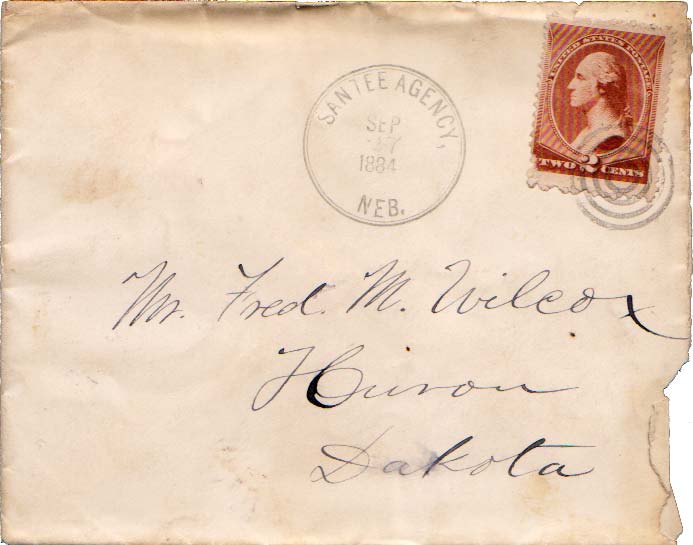 SANTEE AGENCY,
SEP
1884
NEB.
UNITED STATES POSTAGE
TWO 2 CENTS
Mr. Fred. M. Wilcox
Huron
Dakota